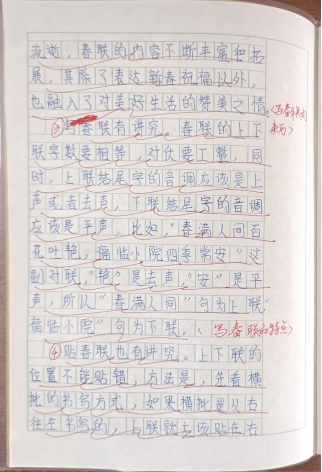 流逝，春联的内容不断丰富和拓
展，其除了表达新春祝福以外，
也融入了对美好生活的赞美之情。
③写春联有讲究。春联的上下
联字数要相等，对仗要工整，同
时，上联结尾字的音调应该是上
声或者去声，下联结尾字的音调
应该是平声，比如，“春满人间百
花吐艳，福临小院四季常安”这
副对联，“艳”是去声，“安”是平
声，所以“春满人间”句为上联“
福临小院”句为下联。（写春联的特点）
④贴春联也有讲究。上下联的
位置不能贴错，方法是，先看横
批的书写方式，如果横批是从右
往左书写的，上联就应该贴在右